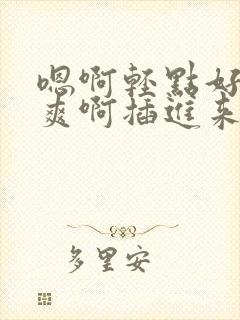 嗯啊輕點好
爽啊插進来
多里安